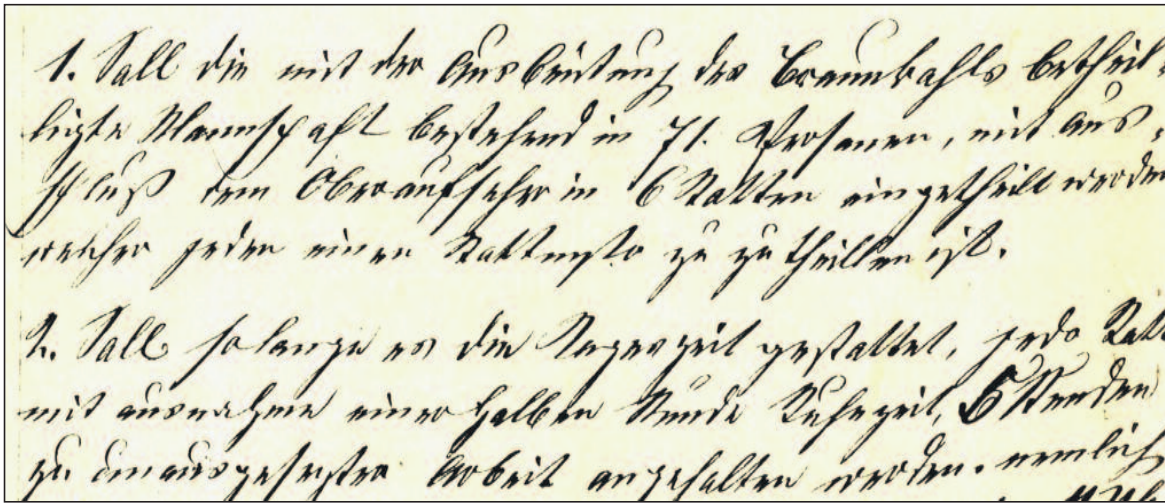 1. Soll die mit der Ausbeutung des Braunkohls betheil-
ligte Mannschaft bestehend in 71. Persanen, mit Aus-
schluß dem Oberaufseher in 6 Rotten eingetheilt werden
welcher jeden einen Rottmstr zu zu theillen ist.
2. Soll so lange es die Tageszeit gestattet, jede Rott
mit ausnahme einer halben Stunde Ruhezeit, 6 Stunden
zu unausgesezter Arbeit angehalten werden. nemlich